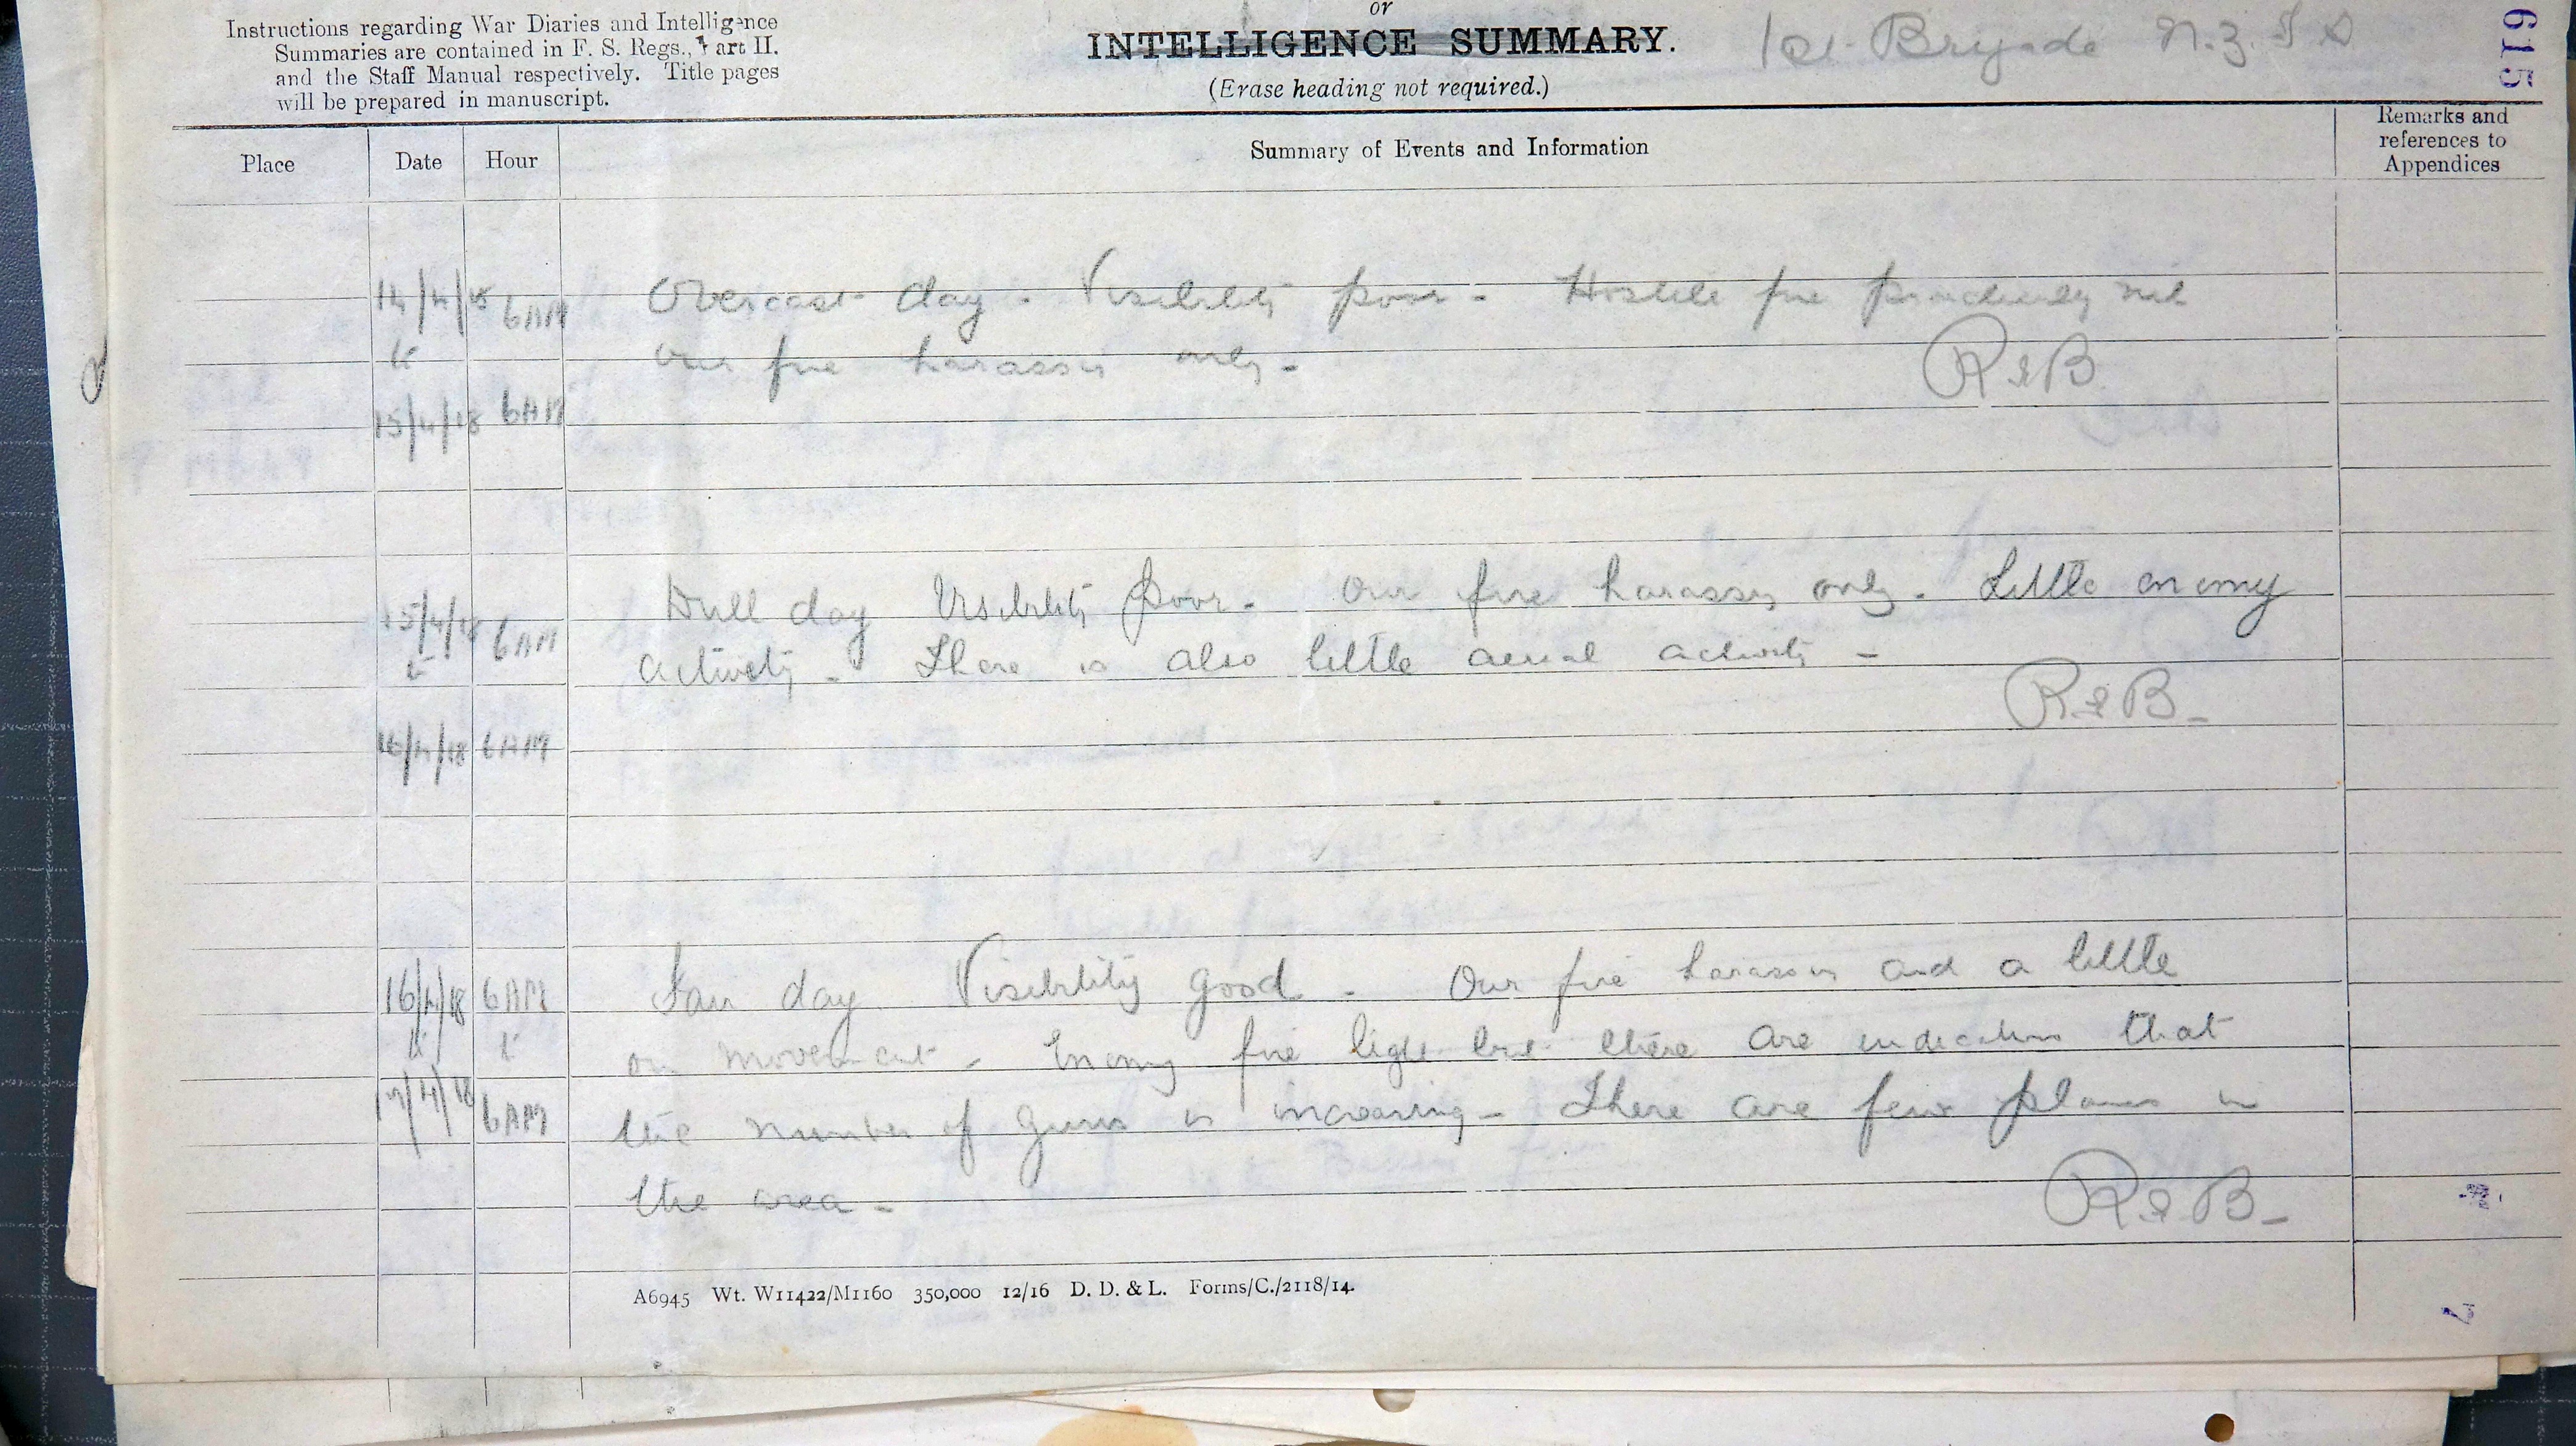 Instructions regarding War Diaries and Intelligence
Summaries are contained in F. S. Regs., Part II.
and the Staff Manual respectively. Title pages
will be prepared in manuscript.
or
INTELLIGENCE SUMMARY.
(Erase heading not required.)
1st Brigade N.Z.F.A
615
Place Date Hour Summary of Events and Information Remarks and references to Appendices
14/4/18 6AM Overcast day. Visibility poor - Hostile fire practically nil
to our fire harassing only -
R&B
15/4/18 6AM
15/4/18 6AM Dull day Visibility poor - Our fire harassing only. Little enemy
to activity - There is also little aerial activity -
R&B -
16/4/18 6AM
16/4/18 6AM Fair day Visibility good - Our fire harassing and a little
to to on movement - Enemy fire light but there are indications that
17/4/18 6AM the number of guns is increasing - There are few planes in
the area -
R&B -
A6945 Wt. W11422/M1160 350,000 12/16 D. D. & L. Forms/C./2118/14.